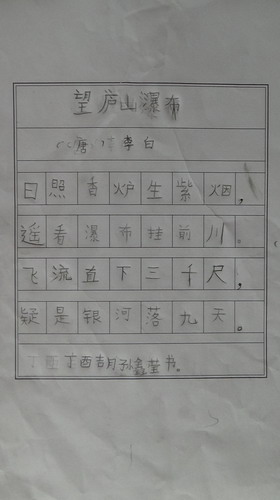 望庐山瀑布
（唐）李白
日照香炉生紫烟，
遥看瀑布挂前川。
飞流直下三千尺，
疑是银河落九天。
丁酉丁酉 月孙鑫莹书。